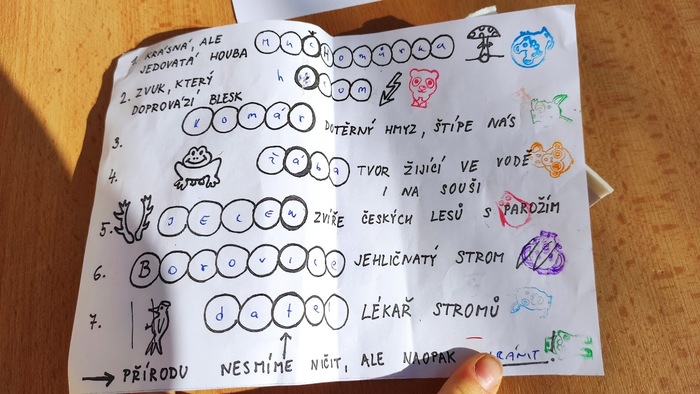 1. KRÁSNÁ, ALE
JEDOVATÁ HOUBA MuchomůrKa
2. ZVUK, KTERÝ
DOPROVÁZÍ BLESK hrom
3. Komár DOTĚRNÝ HMYZ, ŠTÍPE NÁS
4. žába TVOR ŽIJÍCÍ VE VODĚ
I NA SOUŠI
5. JELEN ZVÍŘE ČESKÝCH LESŮ S PAROŽÍM
6. Borovice JEHLIČNATÝ STROM
7. datel LÉKAŘ STROMŮ
PŘÍRODU NESMÍME NIČIT, ALE NAOPAK CHRÁNIT.